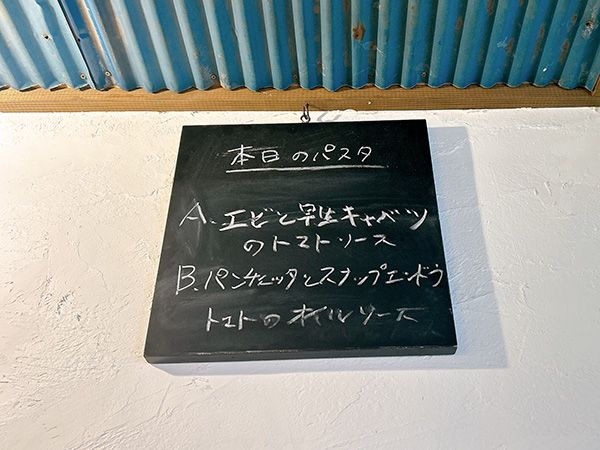 本日のパスタ
A. エビと早生キャベツ
のトマトソース
B. パンチェッタとスナップエンドウ
トマトのオイルソース